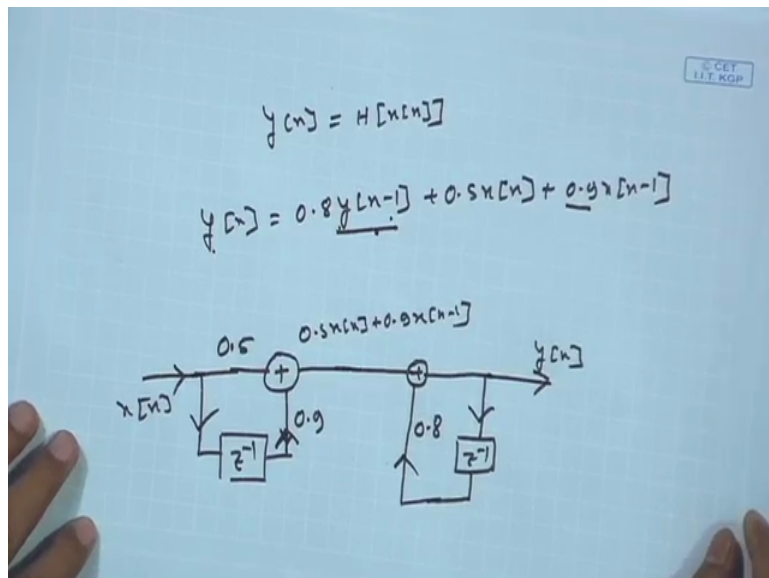 © CET
I.I.T. KGP
y[n] = H[x[n]]
y[n] = 0.8y[n-1] + 0.5x[n] + 0.9x[n-1]
0.5x[n]+0.9x[n-1]
0.5
y[n]
x[n]
0.9
0.8
z⁻¹
z⁻¹